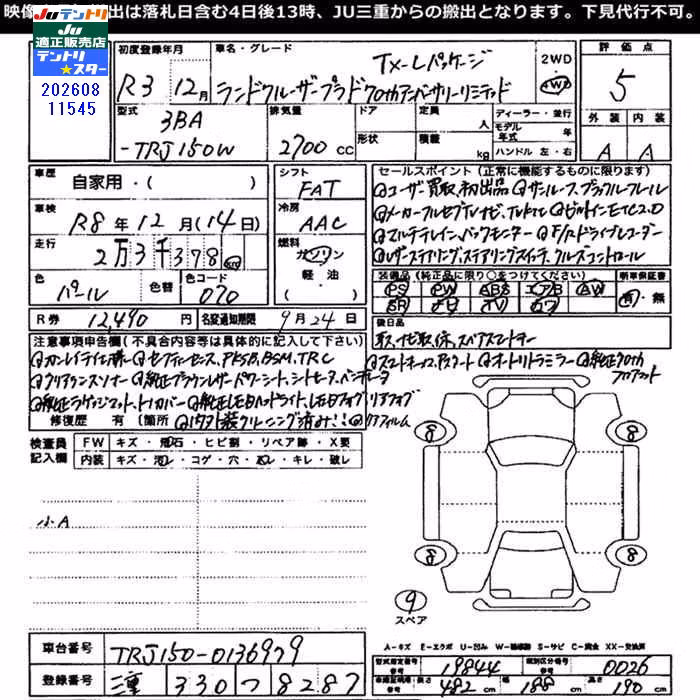 映像 出は落札日含む4日後13時、JU三重からの搬出となります。下見代行不可。
JUテントリ
JU
適正販売店
テントリ
スター
202608
11545
初度登録年月 車名・グレード TX-Lパッケージ 2WD 4WD 評価点
R3 12月 ランドクルーザープラド70thアンバサリーリミテッド 5
型式 3BA 排気量 ドア 定員 人 ディーラー・並行 外装 内装
-TRJ150W 2700 cc 形状 積載 kg モデル年式 年 ハンドル 左・右 A A
車歴 自家用・( ) シフト FAT セールスポイント(正常に機能するものに限ります)
@ユーザー買取、初出品 @サンルーフ、ブラックルーフレール
車検 R8年12月(14日) 冷房 AAC @メーカーフルセグTVナビ、
@ビルトインETC2.0
走行 2万3千378 km 燃料 ガソリン 軽・油( ) @マルチテレイン、バックモニター @F/Rドライブレコーダー
@レザーステアリング、ステアリングスイッチ、クルーズコントロール
色 パール 色替 色コード 070 装備品(純正品に限り○をつけてください) 新車保証書
PS PW ABS エアB AW 有・無
SR ナビ TV カワ
R券 12,490円 名変通知期限 9月24日 後日品
取、ナビ取、保、スペアスマートキー
注意事項申告欄(不具合内容等は具体的に記入して下さい) @スマートキー×2、Pスタート @オートリトラミラー @純正70th フロアマット
@セーフティセンス、PKSB、BSM、TRC
@クリアランスソナー @純正ブラウンレザーパワーシート、シートヒーター、ベンチレータ
@純正ラゲッジマット、トノカバー @純正LEDヘッドライト、LEDフォグ、リアフォグ
修復歴 有(箇所 @内外装クリーニング済み!! @リアフィルム
検査員記入欄 FW キズ・飛石・ヒビ割・リペア跡・X要
内装 キズ・汚レ・コゲ・穴・スレ・キレ・破レ
小A
8 8
8 8
9
スペア
A-キズ E-エクボ U-凹み W-補修跡 S-サビ C-腐食 XX-交換済
車台番号 TRJ150-0136979
型式指定番号 19844 類別区分番号 0026
登録番号 三重 330 つ 8287
長さ 482 cm 幅 188 cm 高さ 190 cm